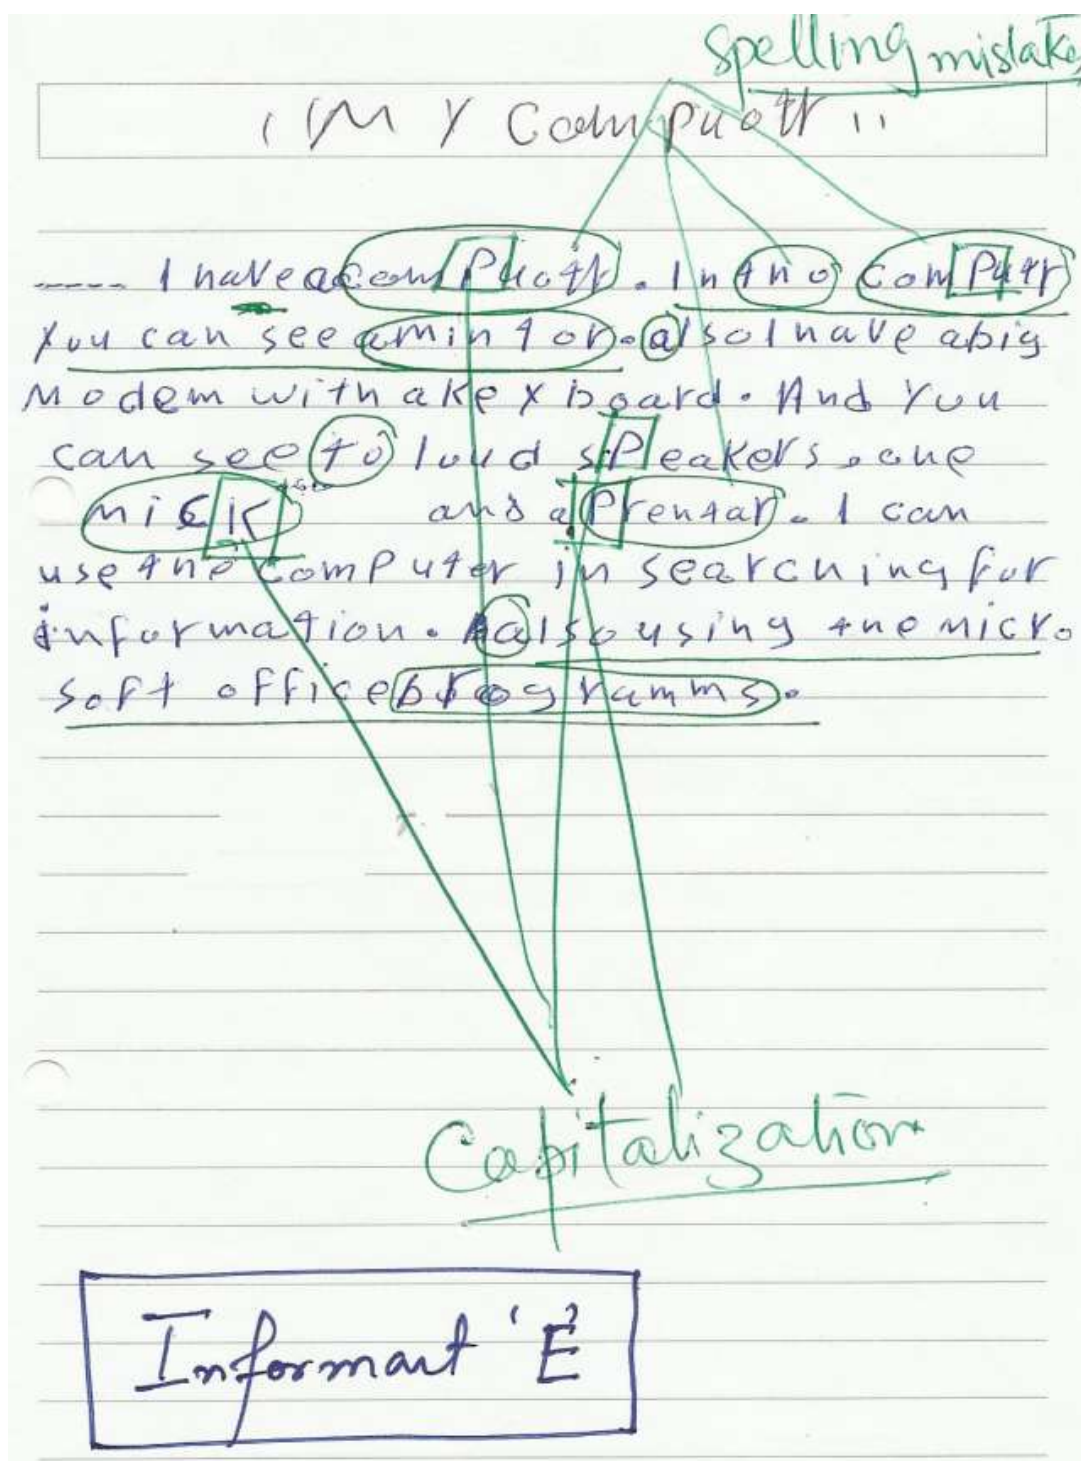 Spelling mistakes
" MY Compuotr "
----- I have a comPuotr. In tho comPutr
You can see amintor. also I have abig
Modem with akeyboard. And You
can see to loud sPeakers, one
micK and a Prentar. I can
use the comPuter in searching for
information. also using the micro
soft office brogramms.
Capitalization
Informant 'E'